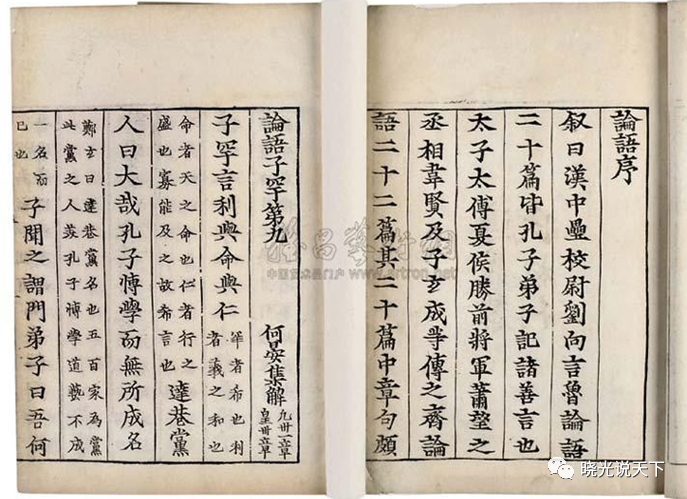 論語序
叙曰漢中壘校尉劉向言魯論語
二十篇皆孔子弟子記諸善言也
太子太傅夏侯勝前將軍蕭望之
丞相韋賢及子玄成等傳之齊論
語二十二篇其二十篇中章句頗
論語子罕第九 何晏集解 凡卅一章 皇卅章
子罕言利與命與仁 罕者希也利者義之和也
命者天之命也仁者行之盛也寡能及之故希言也 達巷黨
人曰大哉孔子博學而無所成名
鄭玄曰達巷黨名也五百家為黨
此黨之人美孔子博學道藝不成
一名而已也 子聞之謂門弟子曰吾何
雅昌藝術網
中国艺术品门户 www.artron.net
晓光说天下